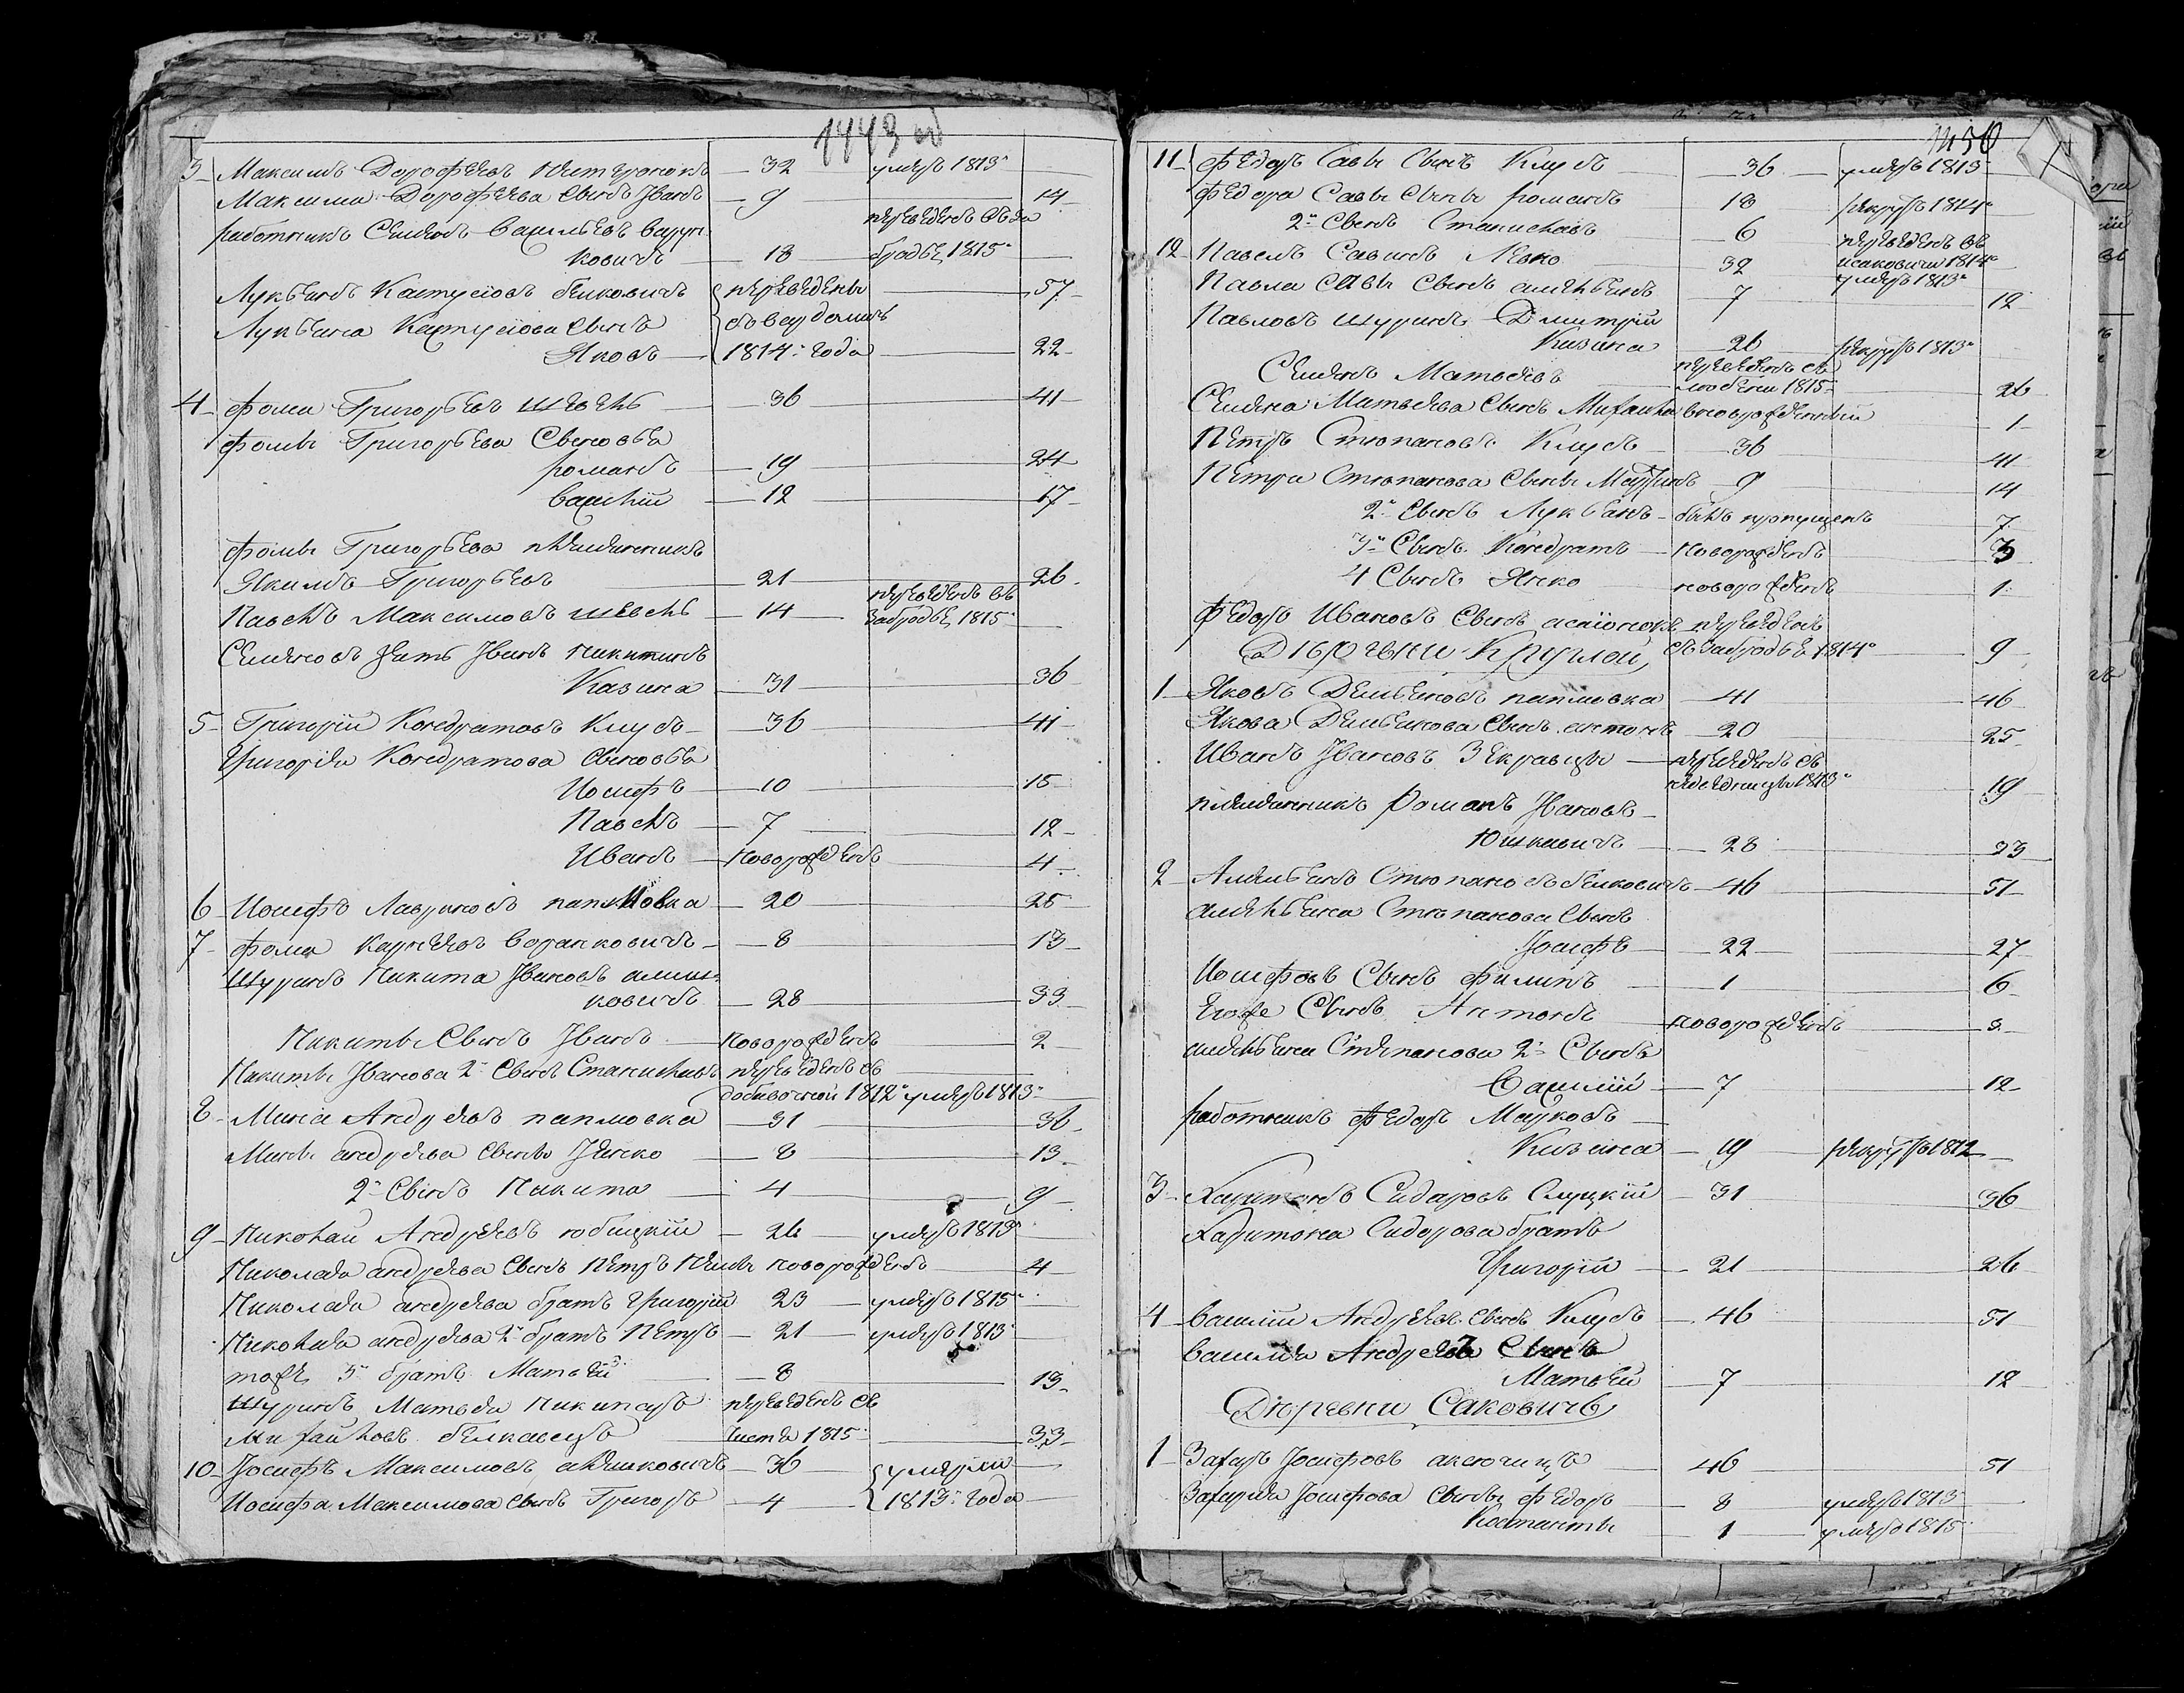 3 Максимъ Дорофѣевъ Нестерюкъ 32 умеръ 1813
Максима Дорофѣева сынъ Иванъ 9 14
работникъ Семенъ Васильевъ
ковичъ 18 переведенъ въ За
бродье 1815
Лукьянъ Кастусіовъ белковичъ переведены 57
Лукьяна Кастусіова сынъ
Яковъ 1814 года 22
4 Фома Григорьевъ Шевель 36 41
Фомы Григорьева Сыновья
романъ 19 24
василій 12 17
Фомы Григорьева племянникъ
Якимъ Григорьевъ 21 26
Павелъ Максимовъ шевель 14 переведенъ въ
Забродье 1815
Семеновъ зять Иванъ Никитинъ
Казина 31 36
5 Григорій Кондратовъ Клубъ 36 41
Григорія Кондратова сыновья
Иосифъ 10 15
Павелъ 7 12
Иванъ новорожденъ 4
6 Иосифъ Лавриновъ папловка 20 25
7 Фома Карнеевъ воранковичъ 8 13
Шуринъ Никита Ивановъ
ковичъ 28 33
Никиты Сынъ Иванъ новорожденъ 2
Никиты Иванова 2 Сынъ Станиславъ переведенъ въ
1812 умеръ 1813
8 Мина Андреевъ папловка 31 36
Мины андреева сынъ Янко 8 13
2 Сынъ Никита 4 9
9 Николай Андреевъ юбицкій 26 умеръ 1813
Николая андреева сынъ Петръ новорожденъ 4
Николая андреева братъ Григорій 23 умеръ 1815
Николая андреева 2 братъ Петръ 21 умеръ 1813
тожъ 3 братъ Матвей 8 13
шуринъ Матвея переведенъ въ
Михайловъ белкавецъ 1815 33
10 Иосифъ Максимовъ 36 умерли
Иосифа Максимова сынъ Григоръ 4 1813 года
1450
11 Федоръ Савы Сынъ Клубъ 36 умеръ 1813
Федора Савы Сыны романъ 18 рекрутъ 1814
2 Сынъ Станиславъ 6 переведенъ въ
исаковичи 1814
12 Павелъ Савинъ Левко 32 умеръ 1813
Павла Савы Сынъ 7 12
Павловъ шуринъ Дмитрій
Казина 26 рекрутъ 1813
Семенъ Матвеевъ переведенъ въ
1815 26
Семена Матвеева сынъ Михаила новорожденный 1
Петръ Стюпановъ Клубъ 36 41
Петра Стюпанова сыны Мартинъ 9 14
2 Сынъ Лукьянъ былъ пропущенъ 7
3 Сынъ Кондратъ новорожденъ 3
4 Сынъ Янко новорожденъ 1
Федоръ Ивановъ Сынъ переведенъ
въ Забродье 1814 9
Дѣревни Круглой
1 Яковъ Демьяновъ папловка 41 46
Якова Демьянова Сынъ антонъ 20 25
Иванъ Ивановъ Зекравцы переведенъ въ
1813 19
племянникъ Романъ Ивановъ
Юшкевичъ 28 33
2 Амельянъ Стюпановъ белковичъ 46 51
амельяна Стюпанова Сынъ
Иосифъ 22 27
Иосифовъ Сынъ Филипъ 1 6
Сынъ Антонъ новорожденъ 3
амельяна Стюпанова 2 Сынъ
Василій 7 12
работникъ Федоръ Марковъ
Казина 19 рекрутъ 1812
3 Харитонъ Сидаровъ Слуцкій 31 36
Харитона Сидорова братъ
Григорій 21 26
4 Василій Андреевъ сынъ Клубъ 46 51
Василія Андреева Сынъ
Матвей 7 12
Дѣревни Саковичъ
1 Захаръ Иосифовъ 46 51
Захарія Иосифова Сыны Федоръ 8 умеръ 1813
Костанты 1 умеръ 1815